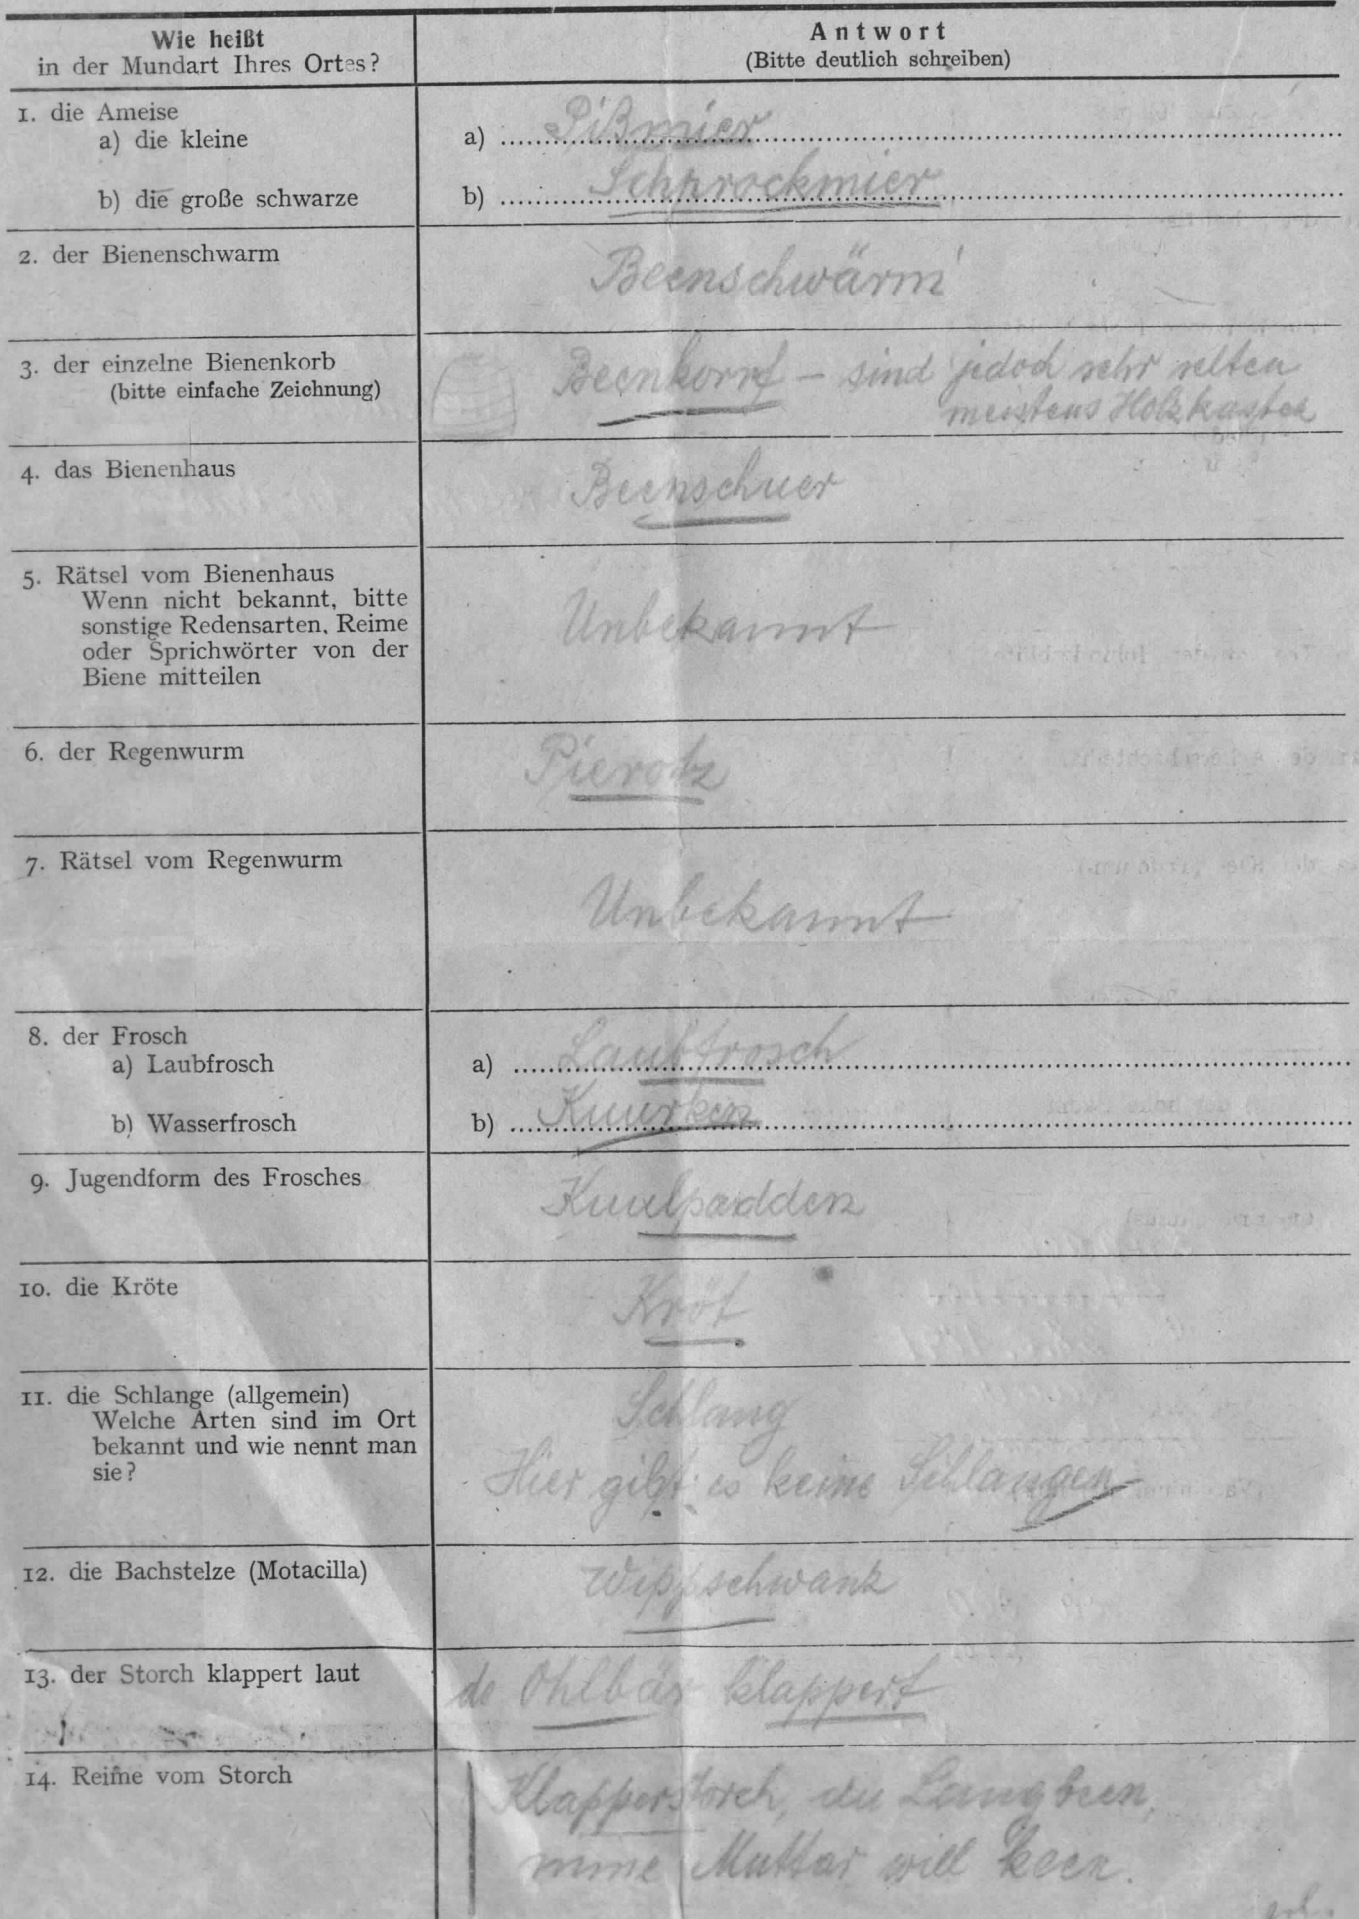 Wie heißt
in der Mundart Ihres Ortes?
Antwort
(Bitte deutlich schreiben)
1. die Ameise
a) die kleine
a) Pißmier
b) die große schwarze
b) Schrockmier
2. der Bienenschwarm
Beenschwärm
3. der einzelne Bienenkorb
(bitte einfache Zeichnung)
Beenkorf – sind jedoch sehr selten
meistens Holzkasten
4. das Bienenhaus
Beenschuer
5. Rätsel vom Bienenhaus
Wenn nicht bekannt, bitte
sonstige Redensarten, Reime
oder Sprichwörter von der
Biene mitteilen
Unbekannt
6. der Regenwurm
Pierotz
7. Rätsel vom Regenwurm
Unbekannt
8. der Frosch
a) Laubfrosch
a) Laubfrosch
b) Wasserfrosch
b) Kuurken
9. Jugendform des Frosches
Kuulpadden
10. die Kröte
Kröt
11. die Schlange (allgemein)
Welche Arten sind im Ort
bekannt und wie nennt man
sie?
Schlang
Hier gibt es keine Schlangen
12. die Bachstelze (Motacilla)
Wippschwanz
13. der Storch klappert laut
de Ohlbär klappert
14. Reime vom Storch
Klapperstorch, du Langbeen,
mine Muttar will keen.